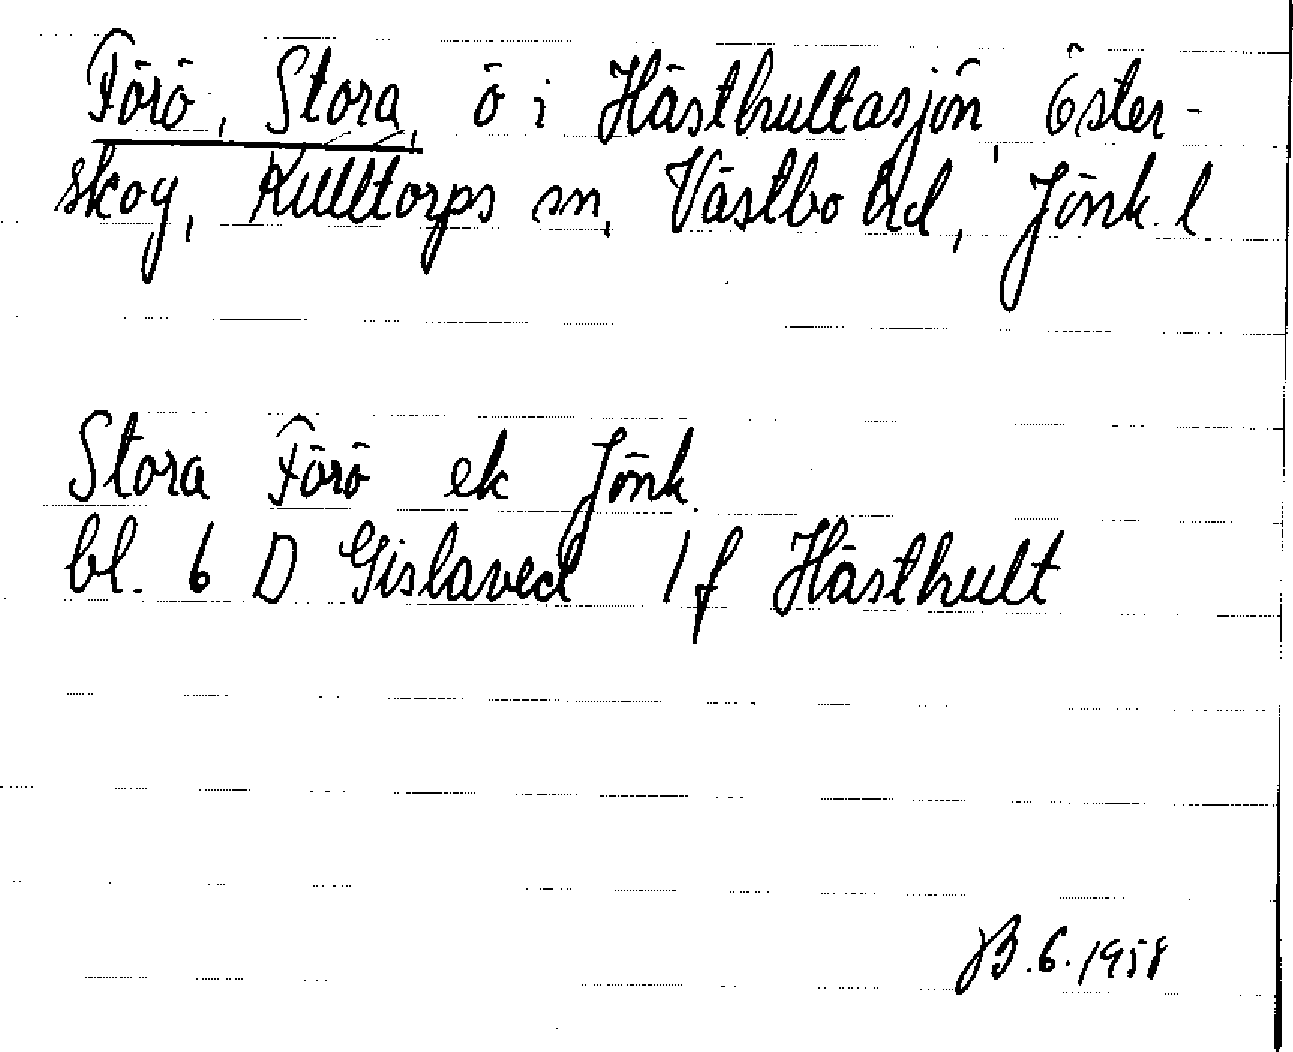 Förö, Stora, ö i Hästhultasjön, Öster-
skog, Kulltorps sn, Västbo hd, Jönk. l
Stora Förö ek Jönk.
bl. 6 D Gislaved 1 f Hästhult
JB.6.1958